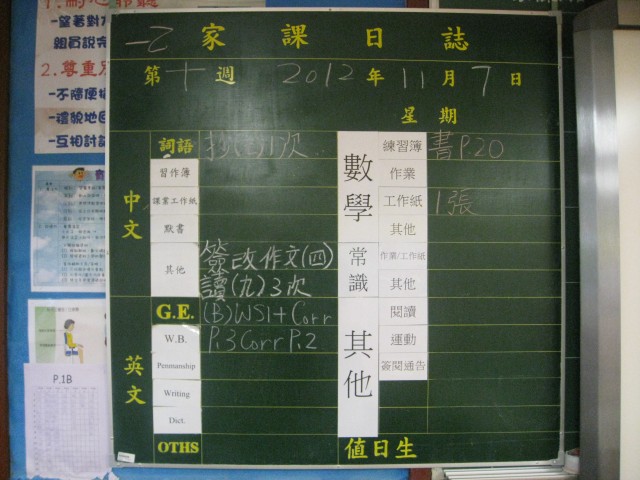 一乙 家課日誌
第十週 2012年11月7日
星期
詞語 抄(二)1次
習作簿
課業工作紙
默書
其他 簽改作文(四)
讀(九)3次
中文
G.E. (B)WS1+Corr
W.B. P.3 Corr P.2
Penmanship
Writing
Dict.
OTHS
英文
數學
練習簿 書P.20
作業
工作紙 1張
其他
常識
作業/工作紙
其他
其他
閱讀
運動
簽閱通告
值日生
-望著對
組員說完
2.尊重
-不隨便
-禮貌地
-互相討
P.1B